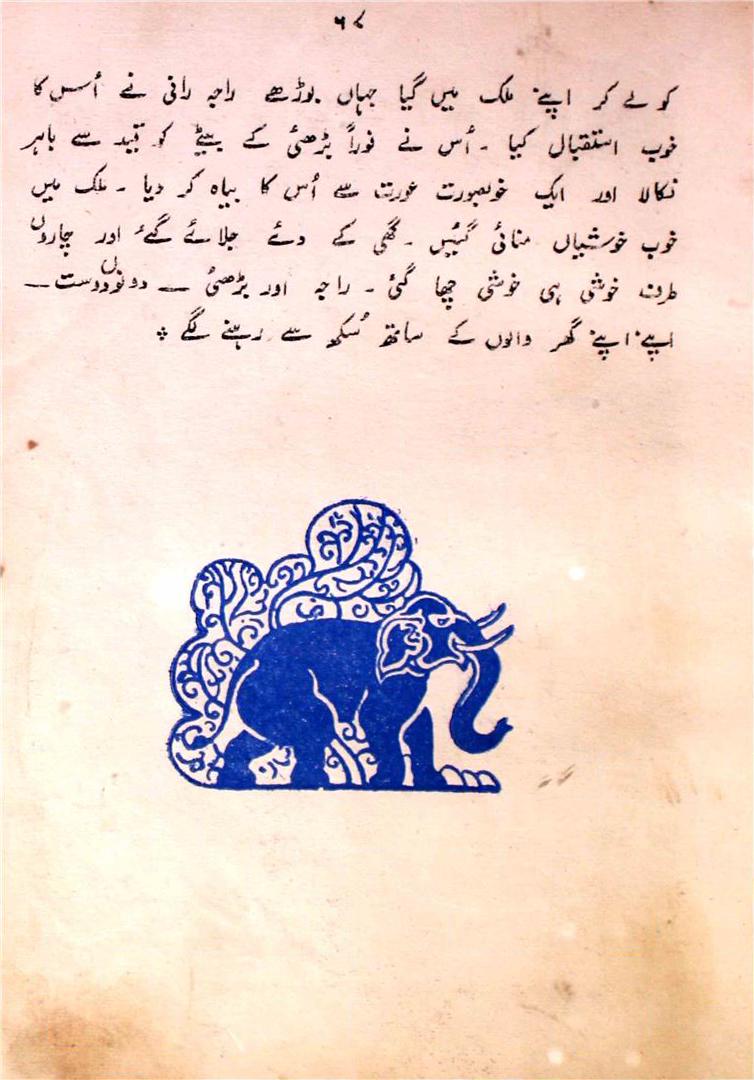 ۶۸
کو لے کر اپنے ملک میں گیا جہاں بوڑھے راجہ رانی نے اُس کا
خوب استقبال کیا ۔ اُس نے فوراً بڑھئی کے بیٹے کو قید سے باہر
نکالا اور ایک خوبصورت عورت سے اُس کا بیاہ کر دیا ۔ ملک میں
خوب خوشیاں منائی گئیں ۔ گھی کے دئے جلائے گئے اور چاروں
طرف خوشی ہی خوشی چھا گئی ۔ راجہ اور بڑھئی ــ دونوں دوست ــ
اپنے اپنے گھر والوں کے ساتھ سُکھ سے رہنے لگے ❖